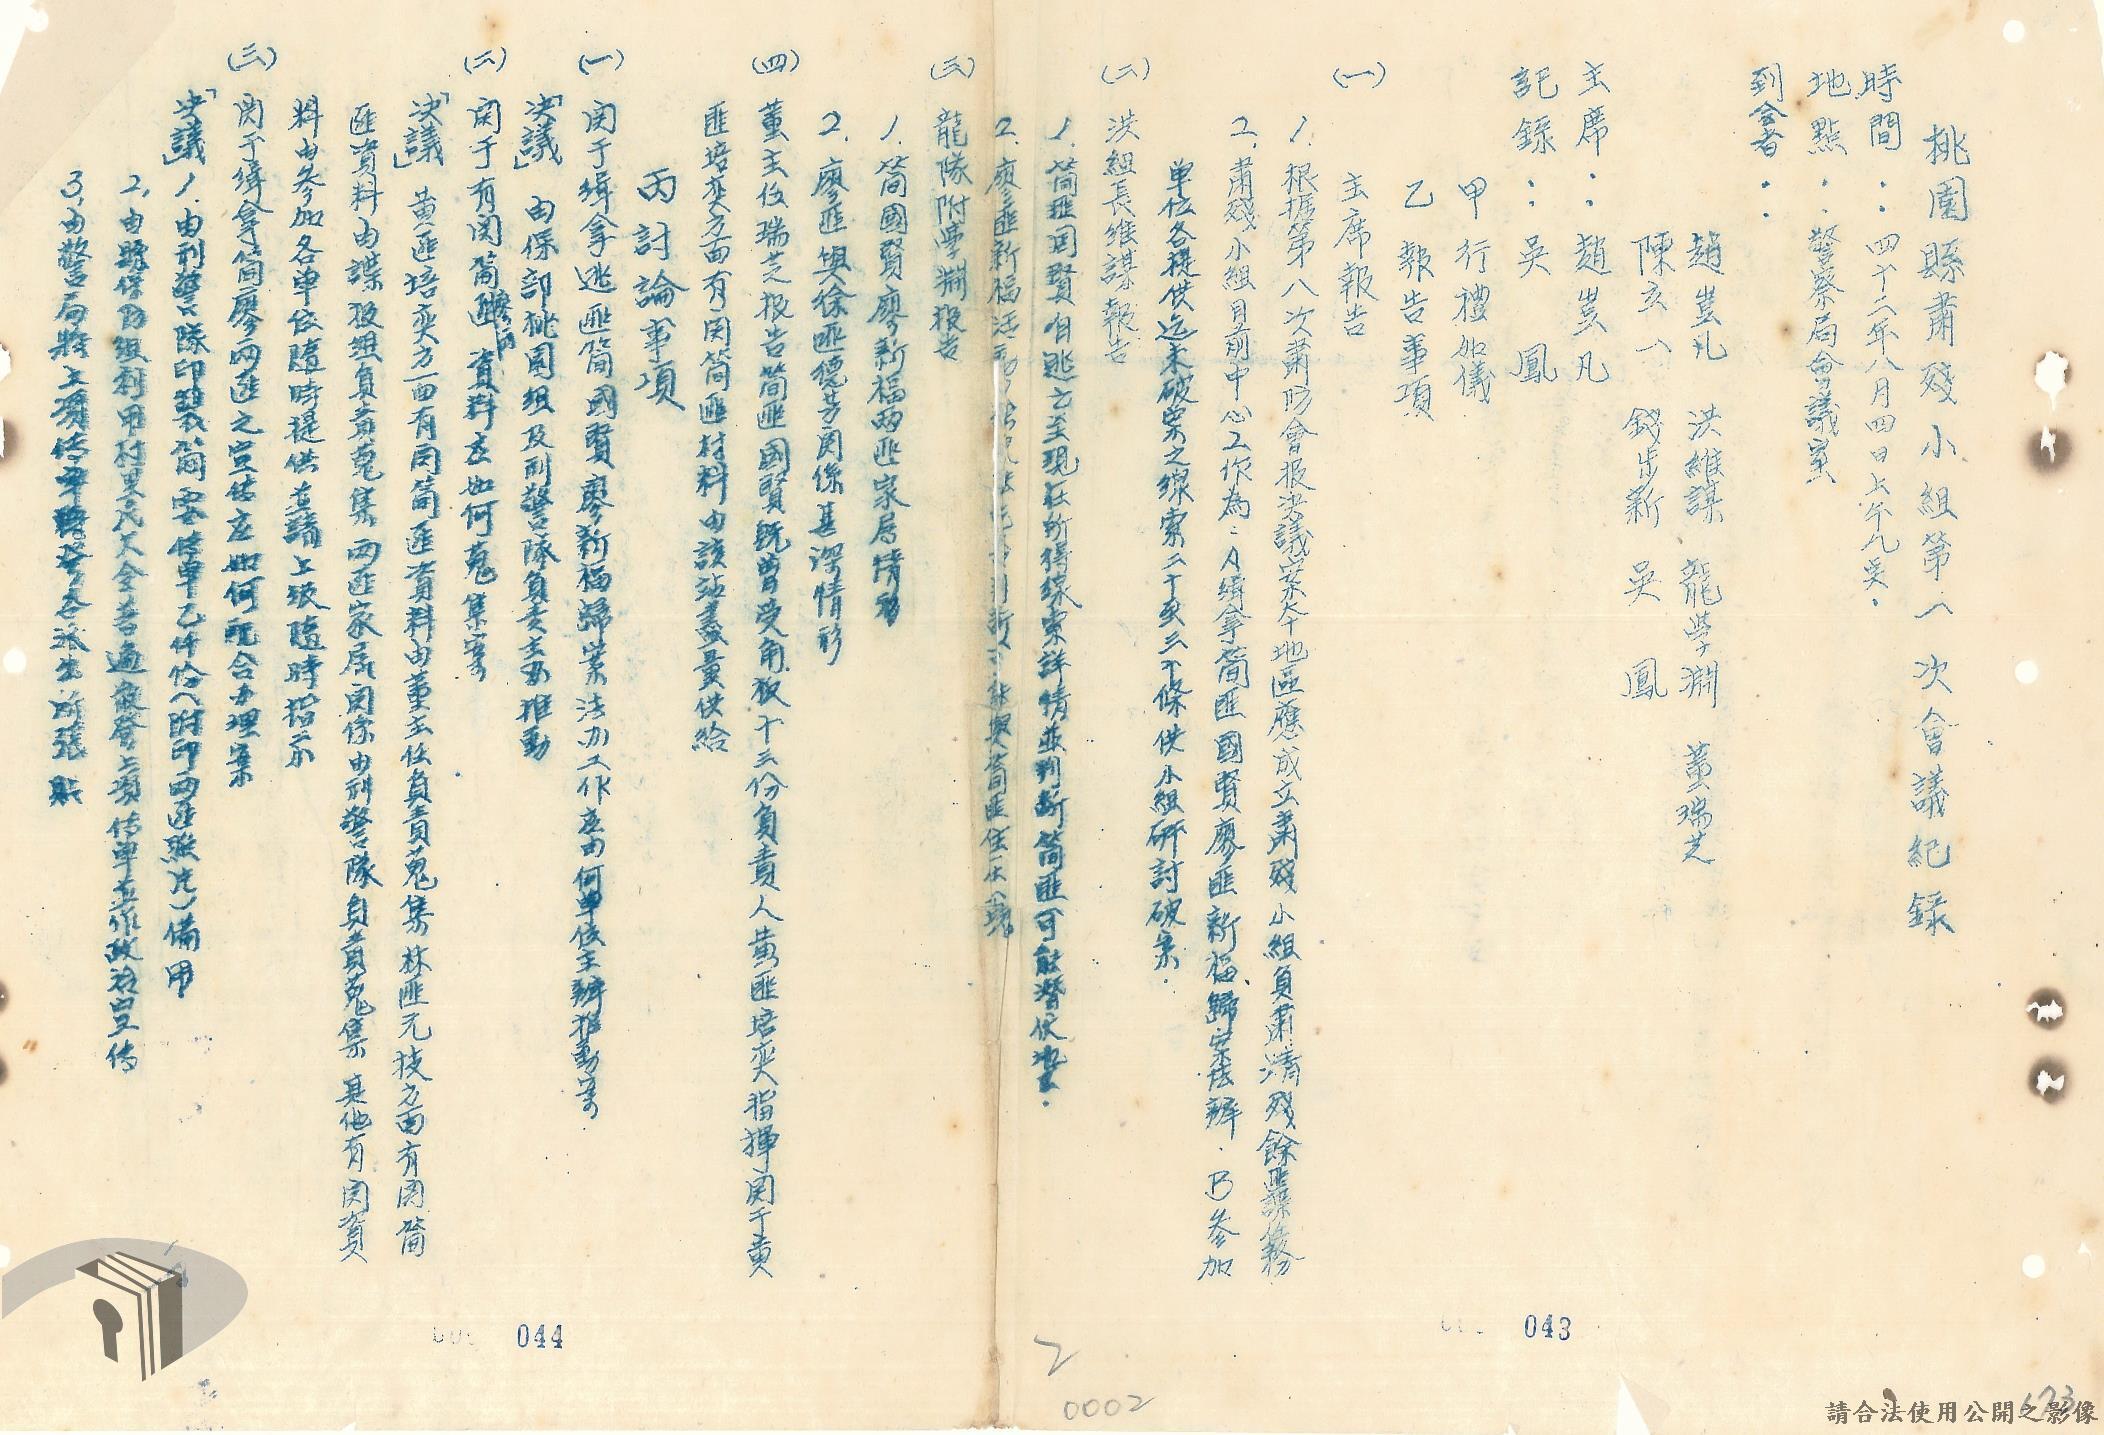 桃園縣肅殘小組第一次會議紀錄
時間：四十二年八月四日上午九時。
地點：警察局會議室
到會者：
趙豈凡 洪維謀 龍學淵 董瑞芝
陳玄八 錢步新 吳鳳
主席：趙豈凡
記錄：吳鳳
甲 行禮如儀
乙 報告事項
(一) 主席報告
1. 根据第八次肅防會报決議案本地區應成立肅殘小組負肅清殘餘匪諜任務
2. 肅殘小組目前中心工作為：A緝拿簡匪國賢廖匪新福歸案法辦．B參加
單位各提供迄未破案之線索二十至三十條供小組研討破案．
(二) 洪組長維謀報告
1. 簡匪国賢自逃亡至現在所得線索詳情並判斷簡匪可能潛伏地区．
2. 廖匪新福活動 與簡匪住在一塊
(三) 龍隊附學淵报告
1. 簡國賢廖新福兩匪家屬情形
2. 廖匪與徐匪德芳関係甚深情形
(四) 董主任瑞芝报告簡匪國賢既曾受角板十三份負責人黄匪培奕指揮関于黄
匪培奕方面有関简匪材料由該站盡量供給
丙 討論事項
(一) 関于緝拿逃匪簡國賢廖新福歸案法办工作应由何單位主辦推動案
「決議」由保部桃園組及刑警隊負責主办推動
(二) 関于有関簡匪廖匪資料应如何蒐集案
「決議」黄匪培奕方面有関簡匪資料由董主任負責蒐集林匪元枝方面有関簡
匪資料由諜报組負責蒐集兩匪家属関係由刑警隊負責蒐集其他有関資
料由參加各單位隨時提供並請上級隨時指示
(三) 関于緝拿簡廖兩匪之宣传应如何配合办理案
「決議」1. 由刑警隊印製簡 传單乙仟份(附印兩匪照片)備用
2. 由縣保防組利用村里民大会普遍散發上項传單並作政治宣传
3. 由警局將上項传单轉發各派出所張貼
044
043
2
0002
請合法使用公開之影像